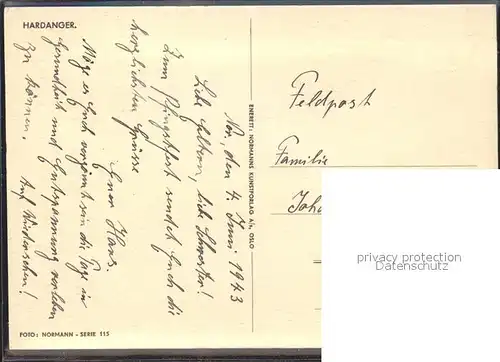 HARDANGER.
Nor., den 4. Juni 1943
Liebe Eltern, liebe Schwester!
Zum Pfingstfest sendet Euch die
herzlichsten Grüsse
Euer Hans.
Möge es Euch vergönnt sein die Tage in
Gesundheit und Entspannung verleben
zu können.
Auf Wiedersehen!
FOTO: NORMANN - SERIE 115
ENERETT: NORMANNS KUNSTFORLAG A/S, OSLO
Feldpost
Familie
Joha
privacy protection
Datenschutz